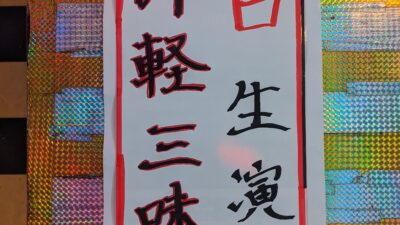 日 生演
軽三味